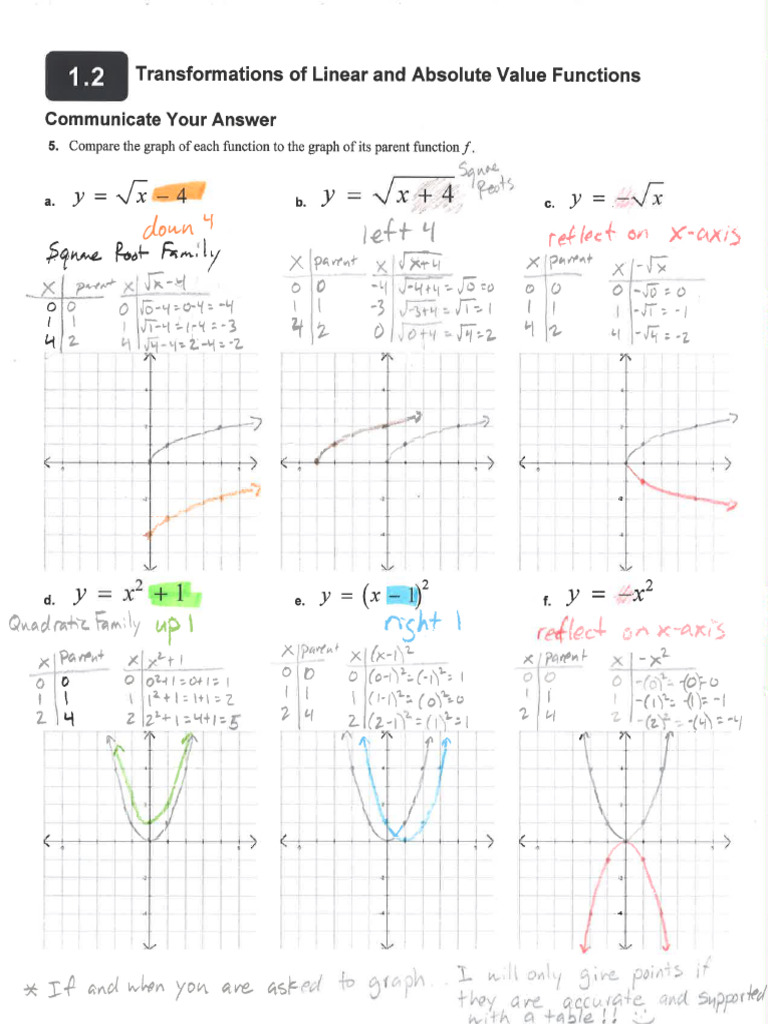 1.2 Transformations of Linear and Absolute Value Functions
Communicate Your Answer
5. Compare the graph of each function to the graph of its parent function f.
a. y = √x − 4
b. y = √(x + 4)
Square Roots
c. y = −√x
down 4
left 4
reflect on x-axis
Square Root Family
x | parent
0 | 0
1 | 1
4 | 2
x | √x-4
0 | √0-4=0-4=-4
1 | √1-4=1-4=-3
4 | √4-4=2-4=-2
x | parent
0 | 0
1 | 1
4 | 2
x | √x+4
-4 | √-4+4=√0=0
-3 | √-3+4=√1=1
0 | √0+4=√4=2
x | parent
0 | 0
1 | 1
4 | 2
x | -√x
0 | -√0=0
1 | -√1=-1
4 | -√4=-2
d. y = x² + 1
e. y = (x − 1)²
f. y = −x²
Quadratic Family up 1
right 1
reflect on x-axis
x | Parent
0 | 0
1 | 1
2 | 4
x | x²+1
0 | 0²+1=0+1=1
1 | 1²+1=1+1=2
2 | 2²+1=4+1=5
x | parent
0 | 0
1 | 1
2 | 4
x | (x-1)²
0 | (0-1)²=(-1)²=1
1 | (1-1)²=(0)²=0
2 | (2-1)²=(1)²=1
x | parent
0 | 0
1 | 1
2 | 4
x | -x²
0 | -(0)²=-(0)=0
1 | -(1)²=-(1)=-1
2 | -(2)²=-(4)=-4
* If and when you are asked to graph... I will only give points if
they are accurate and supported
with a table!!